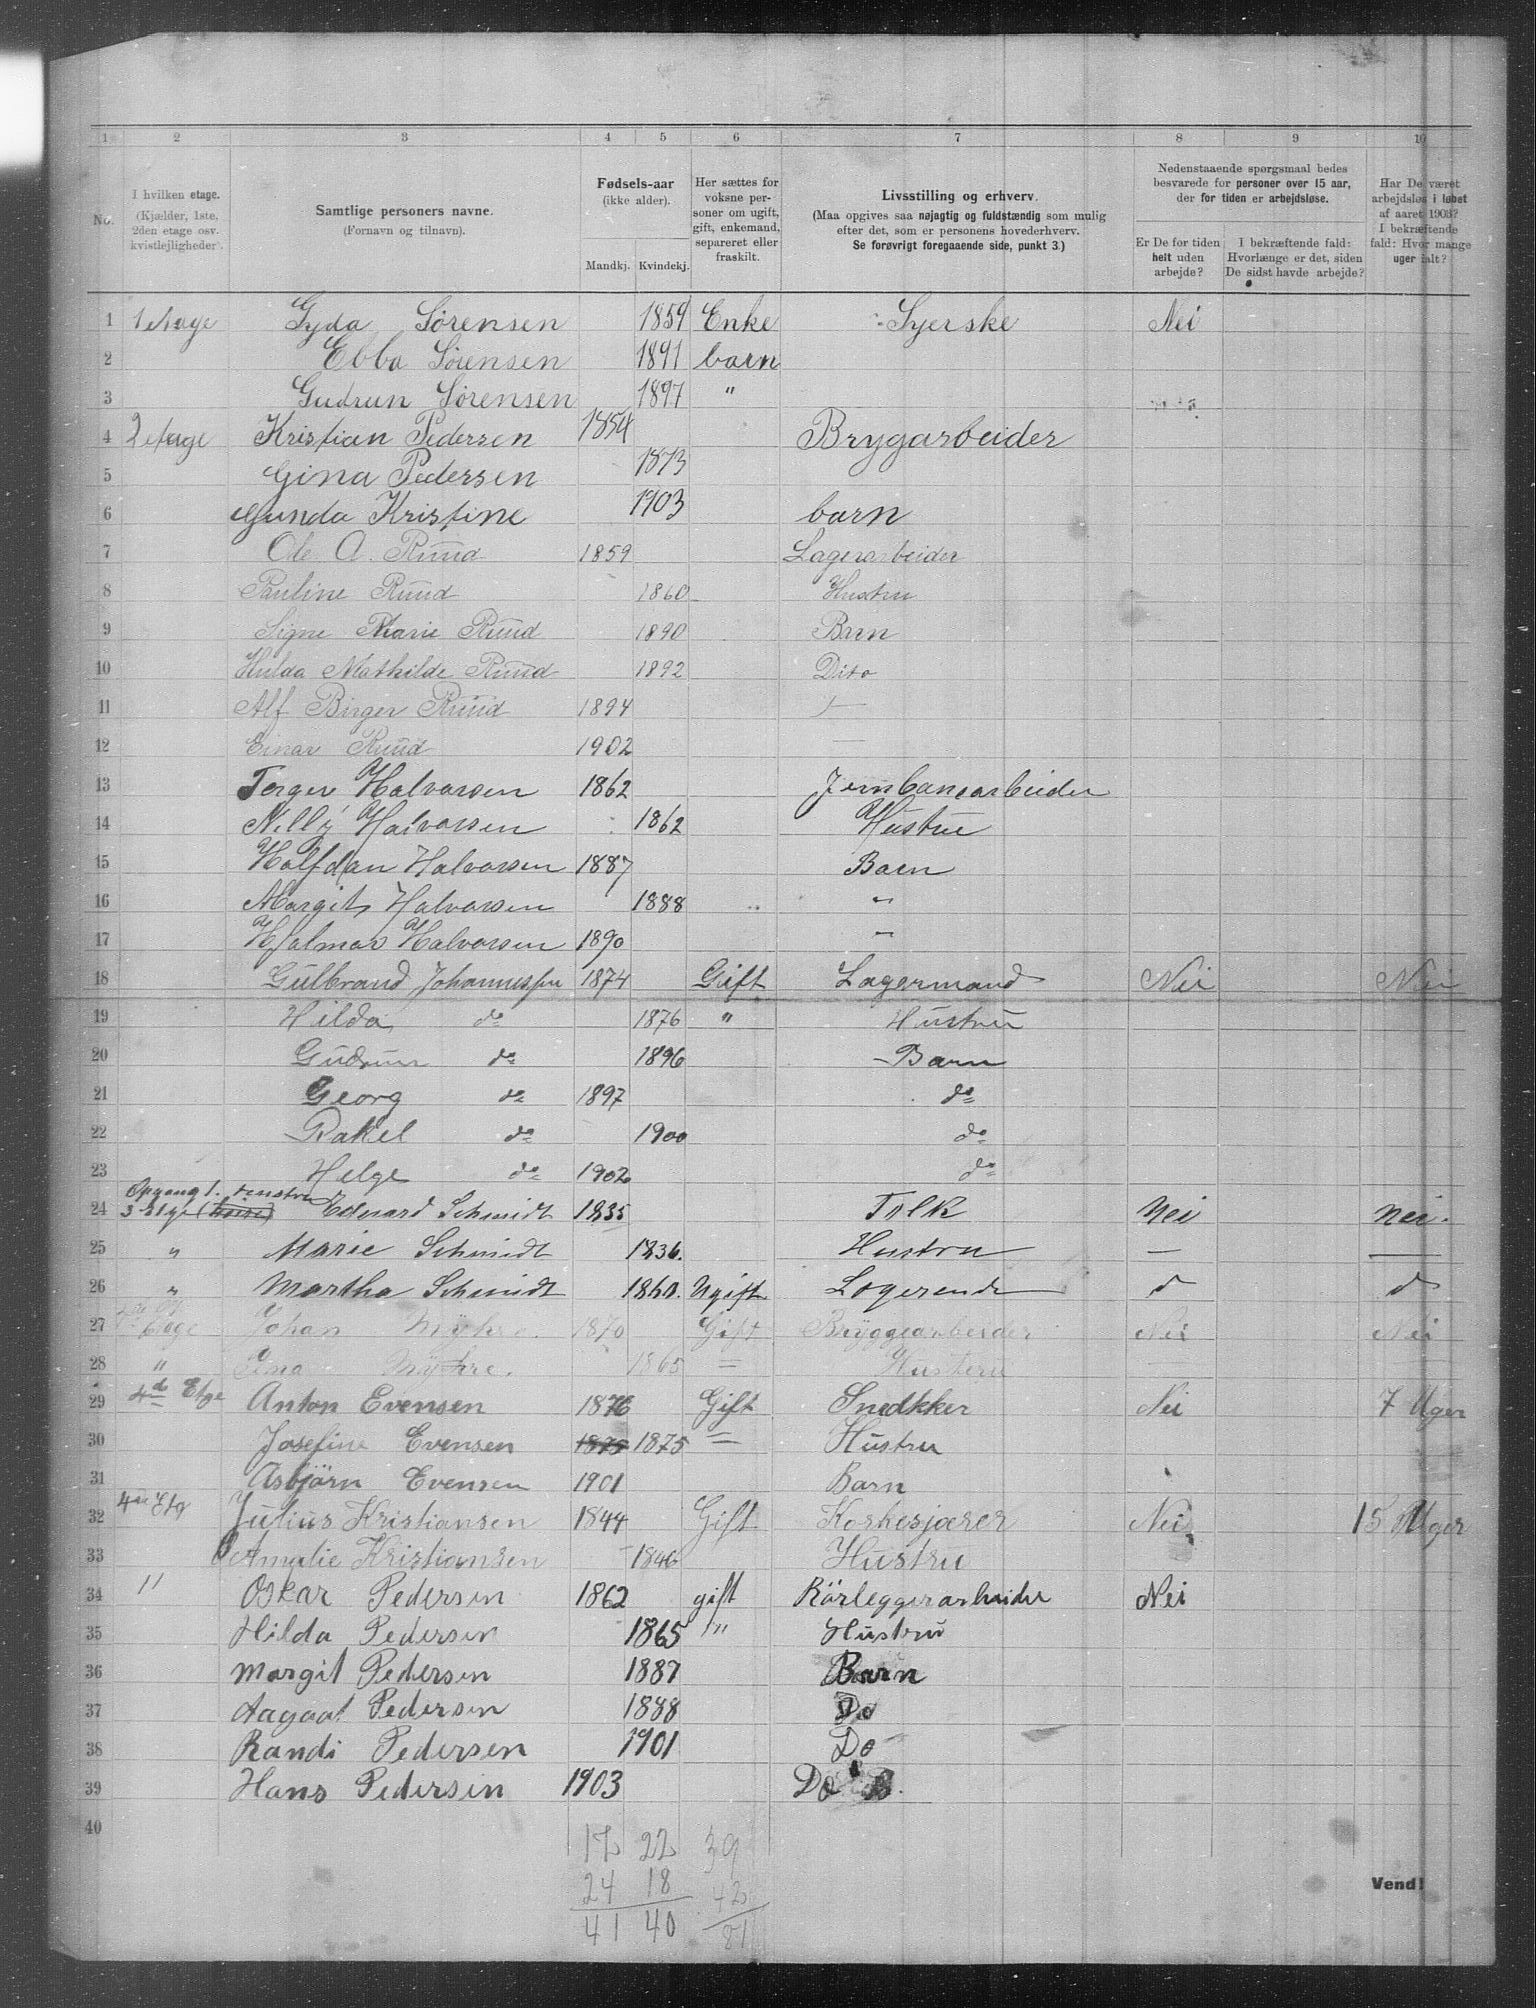 1 2 3 4 5 6 7 8 9 10
No.
I hvilken etage.
(Kjælder, 1ste, 2den etage osv. kvistleiligheder.)
Samtlige personers navne.
(Fornavn og tilnavn).
Fødsels-aar
(ikke alder).
Mandkj. Kvindekj.
Her sættes for voksne personer om ugift, gift, enkemand, separeret eller fraskilt.
Livsstilling og erhverv.
(Maa opgives saa nøjagtig og fuldstændig som mulig
efter det, som er personens hovederhverv.
Se forøvrigt foregaaende side, punkt 3.)
Nedenstaaende spørgsmaal bedes
besvarede for personer over 15 aar,
der for tiden er arbejdsløse.
Er De for tiden helt uden arbejde?
I bekræftende fald: Hvorlænge er det, siden De sidst havde arbejde?
Har De været arbejdsløs i løbet af aaret 1903? I bekræftende fald: Hvor mange uger ialt?
1 1 etage Gyda Sörensen 1859 Enke Syerske Nei
2 Ebba Sörensen 1891 barn
3 Gudrun Sörensen 1897 "
4 2 etage Kristian Pedersen 1854 Brygarbeider
5 Gina Pedersen 1873
6 Gunda Kristine 1903 barn
7 Ole A. Ruud 1859 Lagerarbeider
8 Pauline Ruud 1860 Hustru
9 Signe Marie Ruud 1890 Barn
10 Hulda Mathilde Ruud 1892 Dito
11 Alf Birger Ruud 1894 —
12 Einar Ruud 1902 —
13 Torger Halvorsen 1862 Jernbanearbeider
14 Nelly Halvorsen 1862 Hustru
15 Halfdan Halvorsen 1887 Barn
16 Margit Halvorsen 1888 "
17 Hjalmar Halvorsen 1890 "
18 Gulbrand Johannessen 1874 Gift Lagermand Nei Nei
19 Hilda do 1876 " Hustru
20 Gudrun do 1896 Barn
21 Georg do 1897 do
22 Rakel do 1900 do
23 Helge do 1902 do
Opgang 1. venstre
24 3 Etge (høire) Edvard Schmidt 1835 Tolk Nei Nei.
25 " Marie Schmidt 1836. Hustru — —
26 " Martha Schmidt 1860. Ugift Logerende d d
27 Etage Johan Myhre. 1870 Gift Bryggearbeider Nei Nei
28 " Gina Myhre. 1865 = Husteru
29 4de Etge Anton Evensen 1876 Gift Snedkker Nei 7 Uger
30 Josefine Evensen 1875 1875 = Hustru
31 Asbjörn Evensen 1901 Barn
32 4de Etg Julius Kristiansen 1844 Gift Korkesjærer Nei 15 Uger
33 Amalie Kristiansen 1846 Hustru
34 11 Oskar Pedersen 1862 gift Rörleggerarbeider Nei
35 Hilda Pedersen 1865 " Hustru
36 Margit Pedersen 1887 Barn
37 Aagaat Pedersen 1888 Do
38 Randi Pedersen 1901 Do
39 Hans Pedersen 1903 Do B.
40
17 22 39
24 18 42
41 40 81
Vend!